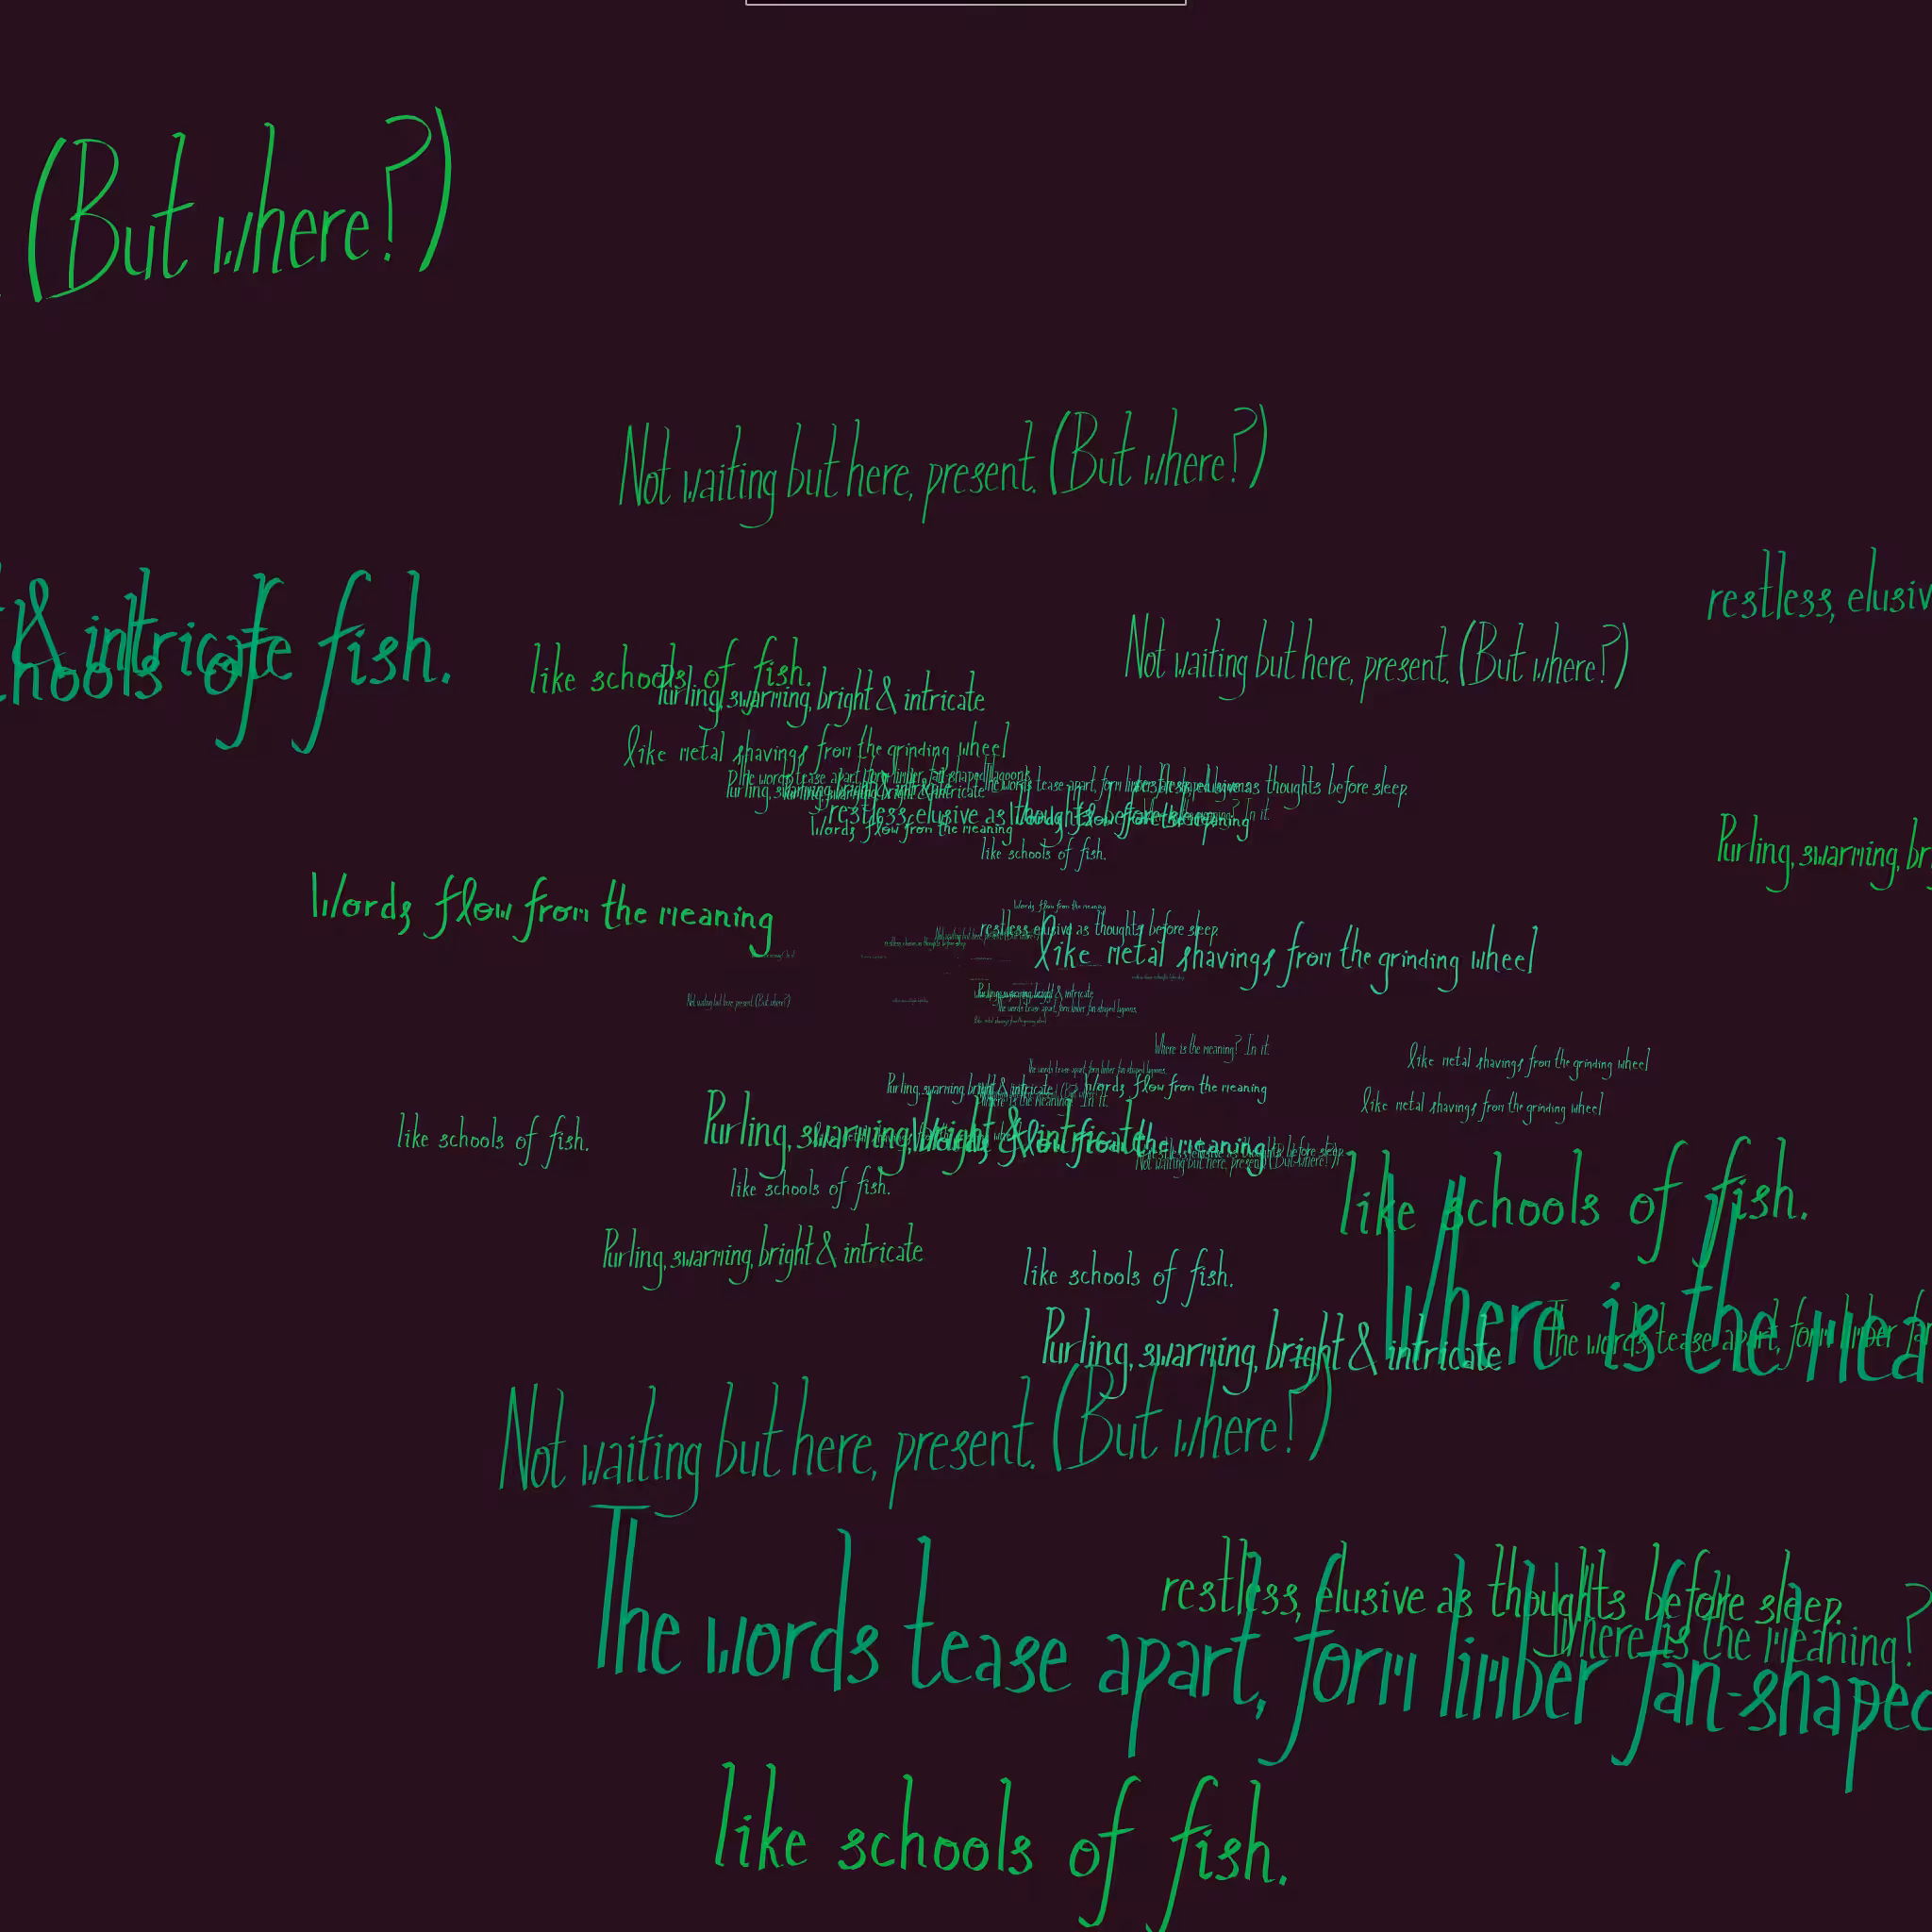 (But where?)
Not waiting but here, present. (But where?)
restless, elusiv
& intricate
chools of fish.
Not waiting but here, present. (But where?)
like schools of fish.
Purling, swarming, bright & intricate
like metal shavings from the grinding wheel
The words tease apart, form limber fan-shaped lagoons.
The words tease apart, form limber fan-shaped lagoons.
restless, elusive as thoughts before sleep.
Purling, swarming, bright & intricate
Purling, swarming, bright & intricate
restless, elusive as thoughts before sleep.
Words flow from the meaning
Where is the meaning? In it.
Words flow from the meaning
like schools of fish.
Purling, swarming, bri
Words flow from the meaning
Words flow from the meaning
restless, elusive as thoughts before sleep.
Not waiting but here, present. (But where?)
restless, elusive as thoughts before sleep.
like metal shavings from the grinding wheel
Purling, swarming, bright & intricate
Not waiting but here, present. (But where?)
The words tease apart, form limber fan-shaped lagoons.
like metal shavings from the grinding wheel
Where is the meaning? In it.
like metal shavings from the grinding wheel
The words tease apart, form limber fan-shaped lagoons.
Purling, swarming, bright & intricate
Words flow from the meaning
Where is the meaning? In it.
like metal shavings from the grinding wheel
like schools of fish.
Purling, swarming, bright & intricate
Words flow from the meaning
like metal shavings from the grinding wheel
restless, elusive as thoughts before sleep.
Not waiting but here, present. (But where?)
like schools of fish.
like schools of fish.
Purling, swarming, bright & intricate
like schools of fish.
Where is the mea
The words tease apart, form limber fan
Purling, swarming, bright & intricate
Not waiting but here, present. (But where?)
restless, elusive as thoughts before sleep.
Where is the meaning?
The words tease apart, form limber fan-shaped
like schools of fish.